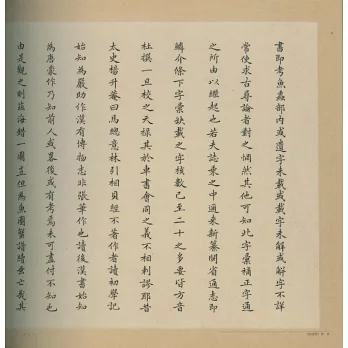 書即考魚蟲部內或遺字未載或載字未解或解字不詳
常使求古尋論者對之惘然其他可知此字彙補正字通
之所由以繼起也若夫誌乘之中通來新纂閩省通志即
鱗介條下字彙缺載之字核數已至二十之多要皆方音
杜撰一旦校之天祿其於車書會同之義不相剌謬耶昔
太史楊升菴曰馬總意林引相貝經不著作者讀初學記
始知為嚴助作漢有博物志非張華作也讀後漢書始知
為唐蒙作乃知前人或畧後或有考焉未可盡付不知也
由是觀之則茲海錯一圖豈但為魚圖蟹譜續垂亡哉其